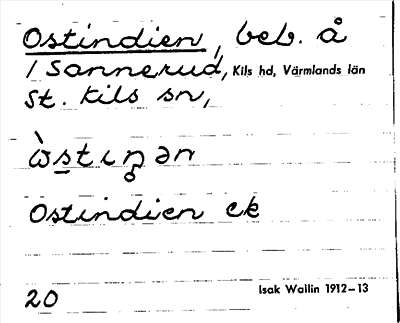 Ostindien, beb. å
/ Sannerud, Kils hd, Värmlands län
St. Kils sn,
Ostindien ek
20 Isak Wallin 1912–13